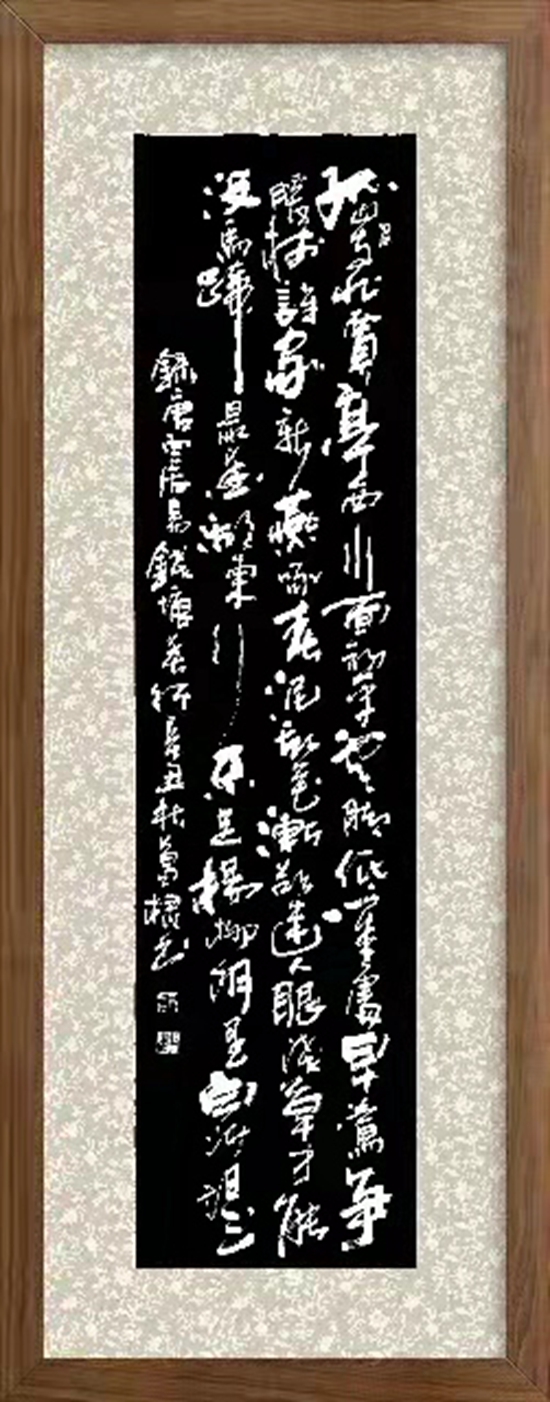 孤山寺北賈亭西水面初平雲腳低幾處早鶯爭
暖樹誰家新燕啄春泥亂花漸欲迷人眼淺草才能
沒馬蹄最愛湖東行不足楊柳陰里白沙堤
錄唐白居易錢塘春行辛丑秋萬书